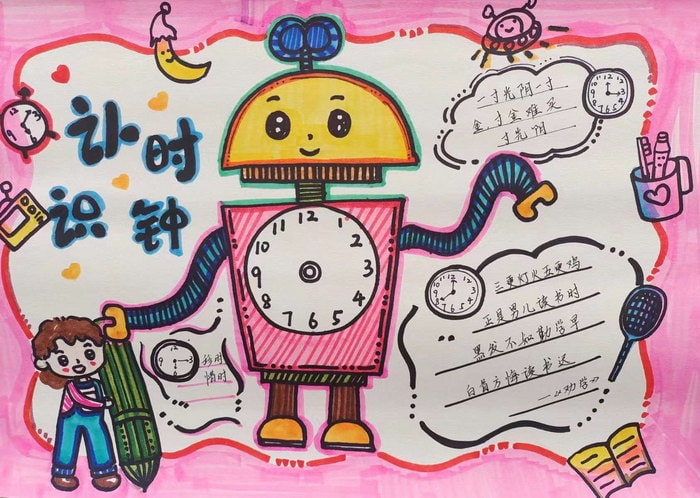 认时
识钟
一寸光阴一寸
金寸金难买
寸光阴
12 1 2 3 4 5 6 7 8 9 10 11
三更灯火五更鸡
正是男儿读书时
黑发不知勤学早
白首方悔读书迟
—《劝学》
珍时
惜时